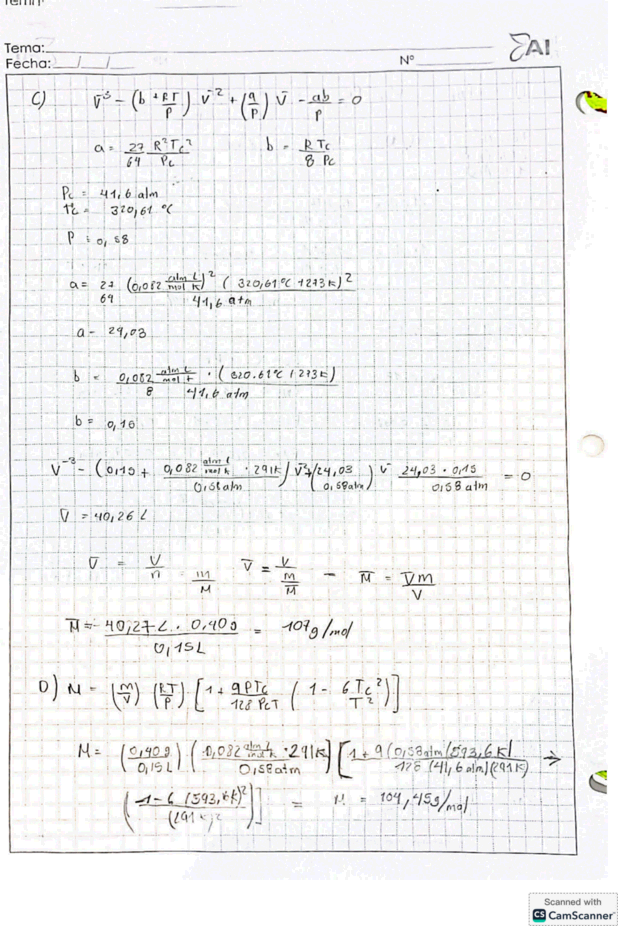 Tema:
Fecha: / /
N°
AI
C) V̄³ - (b + RT/P) V̄² + (a/P) V̄ - ab/P = 0
a = 27/64 R²Tc²/Pc b = RTc/8Pc
Pc = 41,6 atm
Tc = 320,61 °C
P = 0,58
a = 27/64 (0,082 atm L/mol K)² (320,61°C + 273K)²/41,6 atm
a - 29,03
b = 0,082 atm L/mol K · (320.61°C + 273K)/8 41,6 atm
b = 0,16
V̄³ - (0,15 + 0,082 atm L/mol K · 291K/0,58 atm) V̄² + (24,03/0,58 atm) V̄ 24,03 · 0,15/0,58 atm = 0
V̄ = 40,26 L
V̄ = V/n = m/M V̄ = V/(m/M̄) - M̄ = V̄m/V
M̄ = 40,27 L · 0,40g/0,15L = 107g/mol
D) M = (m/V) (RT/P) [1 + 9PTc/128 PcT (1 - 6Tc²/T²)]
M = (0,40g/0,15L) · (0,082 atm L/mol K · 291K/0,58 atm) [1 + 9(0,58atm)(593,6K)/128 (41,6 atm)(291K) →
(1 - 6 (593,6K)²/(291K)²)] = M = 104,45g/mol
Scanned with
CS CamScanner